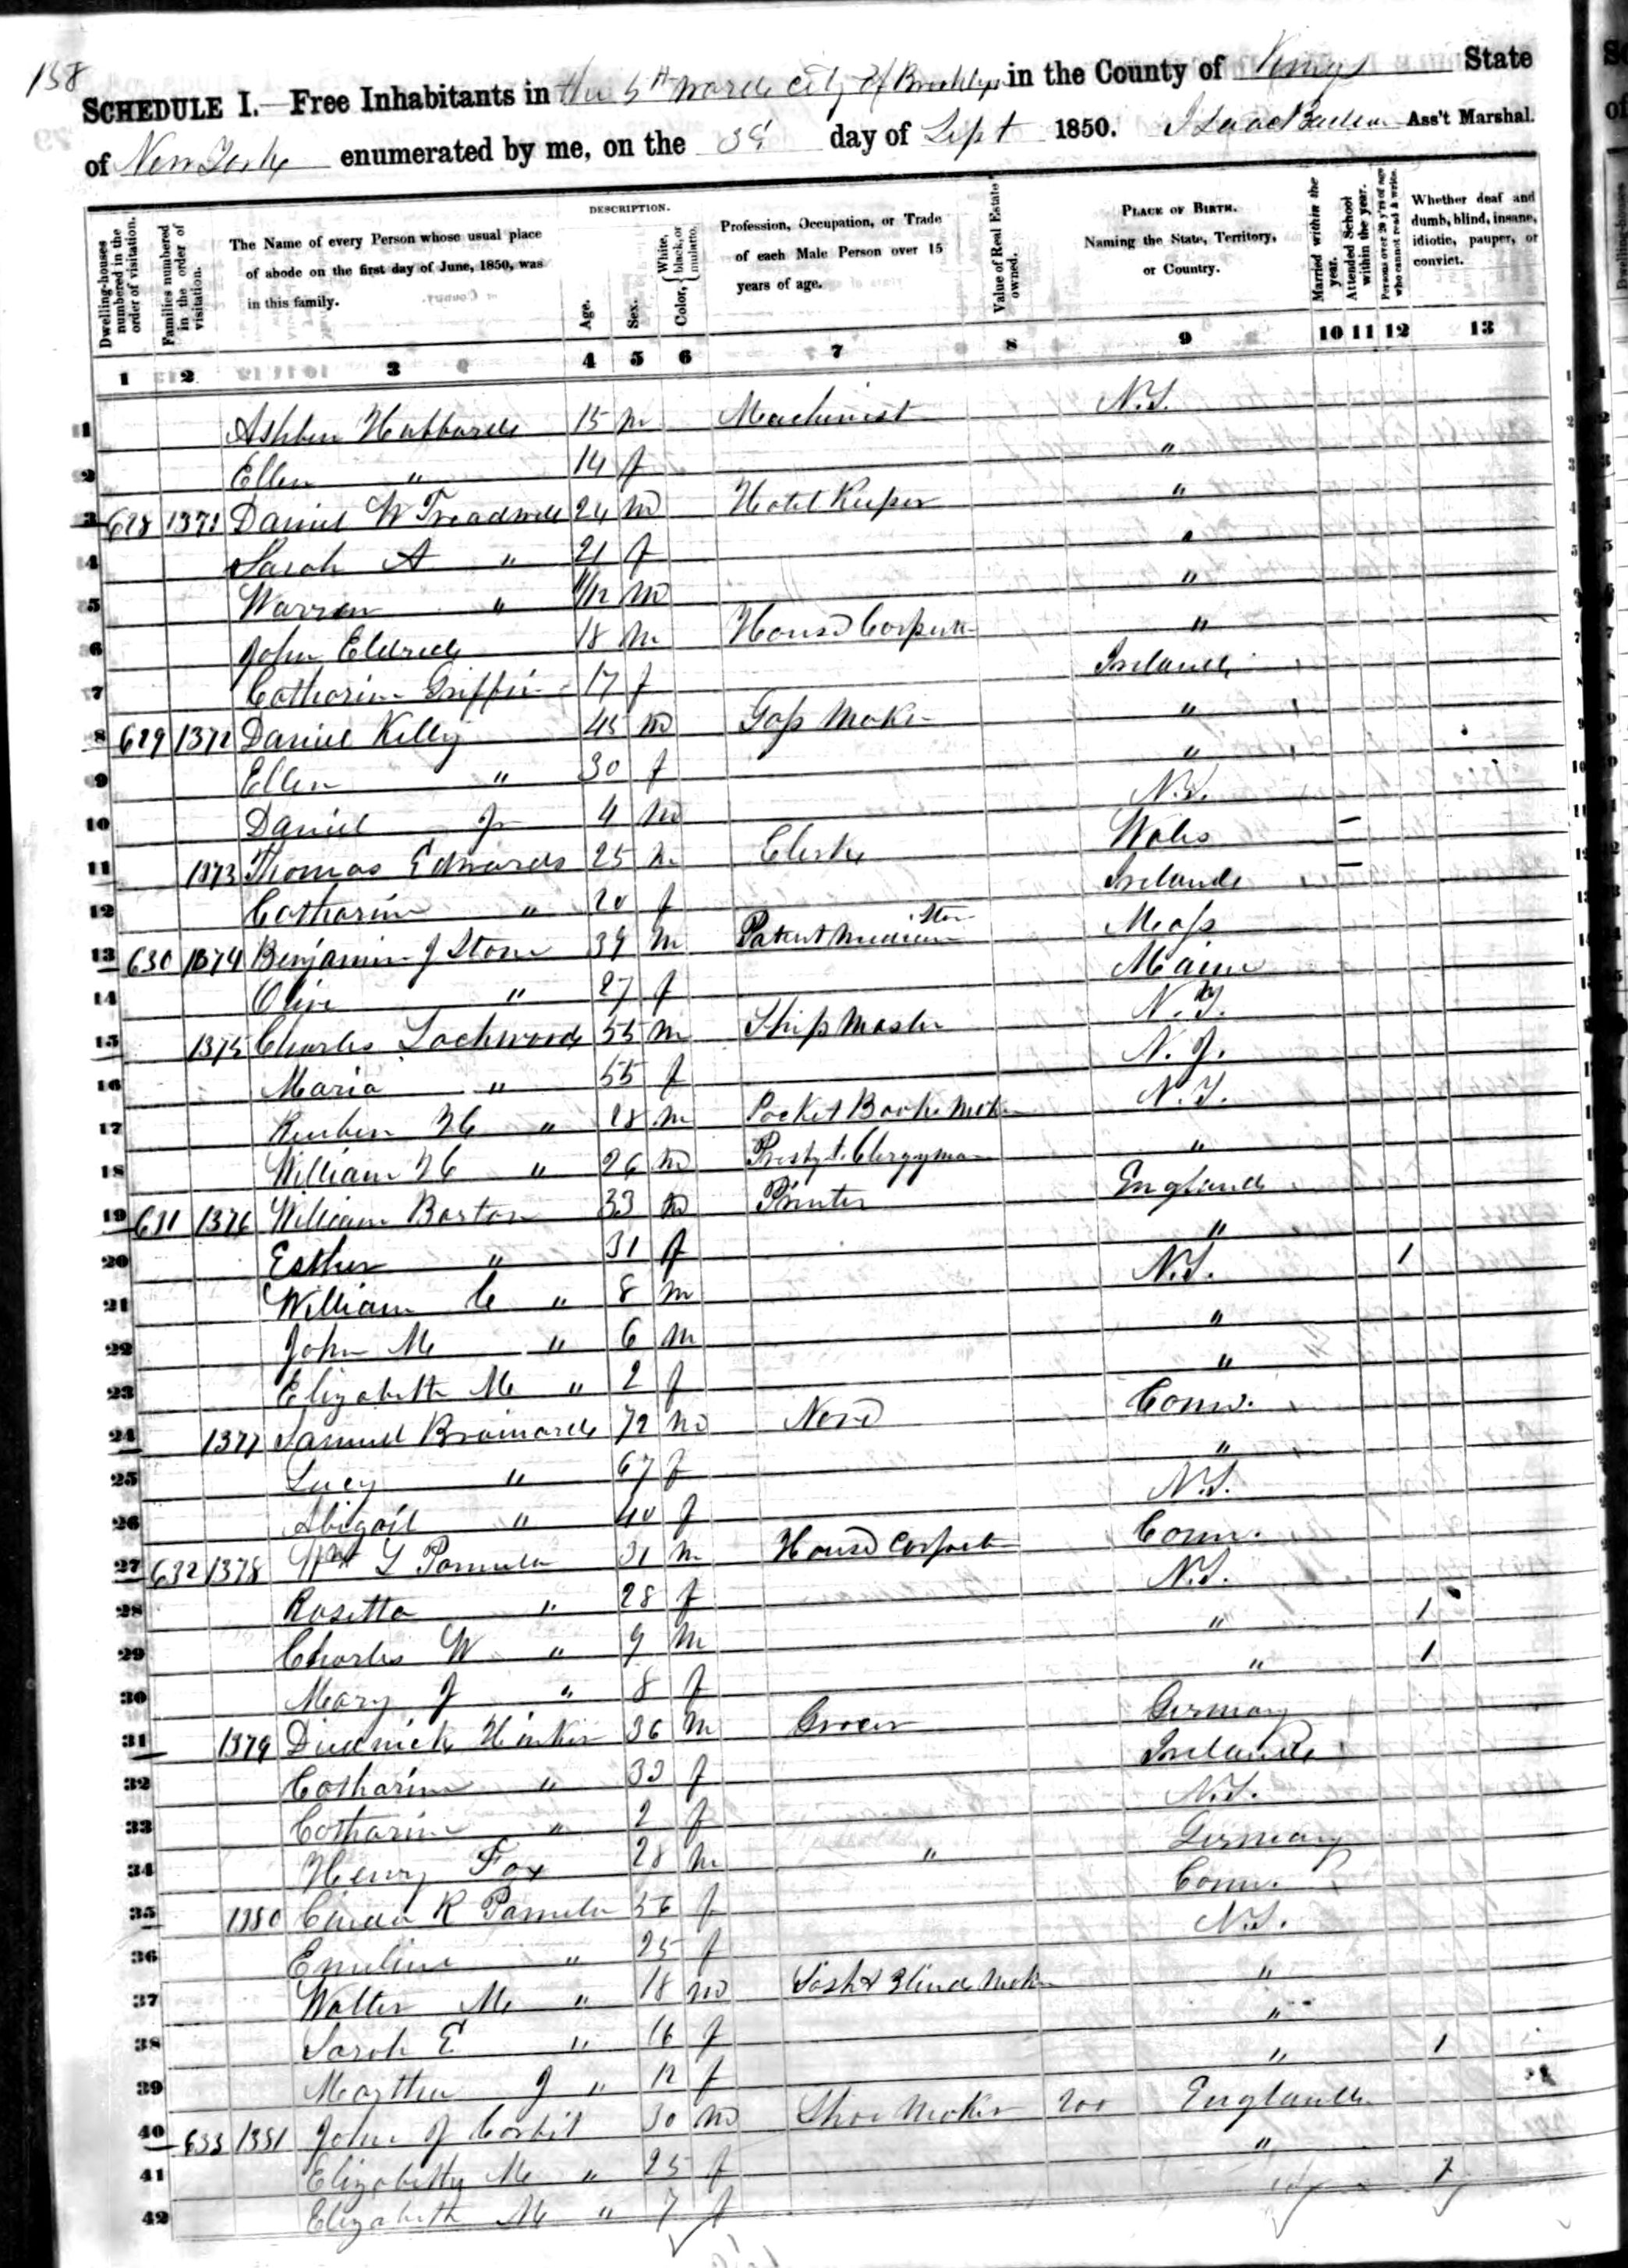 158
SCHEDULE I. Free Inhabitants in the 5th ward city of Brooklyn in the County of Kings State
of New York enumerated by me, on the day of Sept 1850. Isaac Ass't Marshal.
DESCRIPTION.
Dwelling-houses numbered in the order of visitation.
Families numbered in the order of visitation.
The Name of every Person whose usual place of abode on the first day of June, 1850, was in this family.
Age.
Sex.
Color, { White, black, or mulatto.
Profession, Occupation, or Trade of each Male Person over 15 years of age.
Value of Real Estate owned.
PLACE OF BIRTH. Naming the State, Territory, or Country.
Married within the year.
Attended School within the year.
Persons over 20 y'rs of age who cannot read & write.
Whether deaf and dumb, blind, insane, idiotic, pauper, or convict.
1 2 3 4 5 6 7 8 9 10 11 12 13
1 Hubbard 15 m Machinist N.Y.
2 Ellen " 14 f "
3 628 1371 Daniel W Treadwell 24 m Hotel Keeper "
4 Sarah A " 21 f "
5 Warren " m "
6 John Eldred 18 m House Carpenter "
7 Catharine Griffin 17 f Ireland
8 629 1372 Daniel Kelly 45 m Gass Maker "
9 Ellen " 30 f "
10 Daniel Jr 4 m N.Y.
11 1373 Thomas Edwards 25 m Clerk Wales
12 Catharine " 20 f Ireland
13 630 1374 Benjamin J Stone 39 m Patent Medicine Store Mass
14 Olive " 27 f Maine
15 1375 Charles Lockwood 55 m Ship Master N.Y.
16 Maria " 55 f N.J.
17 Reuben H " 28 m Pocket Book Maker N.Y.
18 William H " 26 m Presbyt. Clergyman "
19 631 1376 William Barton 33 m Printer England
20 Esther " 31 f "
21 William C " 8 m N.Y. 1
22 John M " 6 m "
23 Elizabeth M " 2 f "
24 1377 Samuel Brainard 72 m None Conn.
25 Lucy " 67 f "
26 Abigail " 40 f N.Y.
27 632 1378 Wm L 31 m House Carpenter Conn.
28 Rosetta " 28 f N.Y.
29 Charles W " 9 m " 1
30 Mary J " 8 f " 1
31 1379 36 m Grocer Germany
32 Catharine " 33 f Ireland
33 Catharine " 2 f N.Y.
34 Henry Fox 28 m " Germany
35 1380 R 56 f Conn.
36 Emeline " 25 f N.Y.
37 Walter M " 18 m Sash & Blind Maker "
38 Sarah E " 16 f "
39 Martha J " 12 f " 1
40 633 1381 John J Corbit 30 m Shoe Maker 200 England
41 Elizabeth M " 25 f "
42 Elizabeth M " 7 f 1